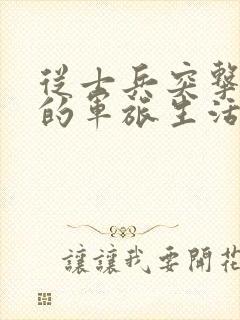 從士兵突擊
的軍旅生活
讓讓我要開花